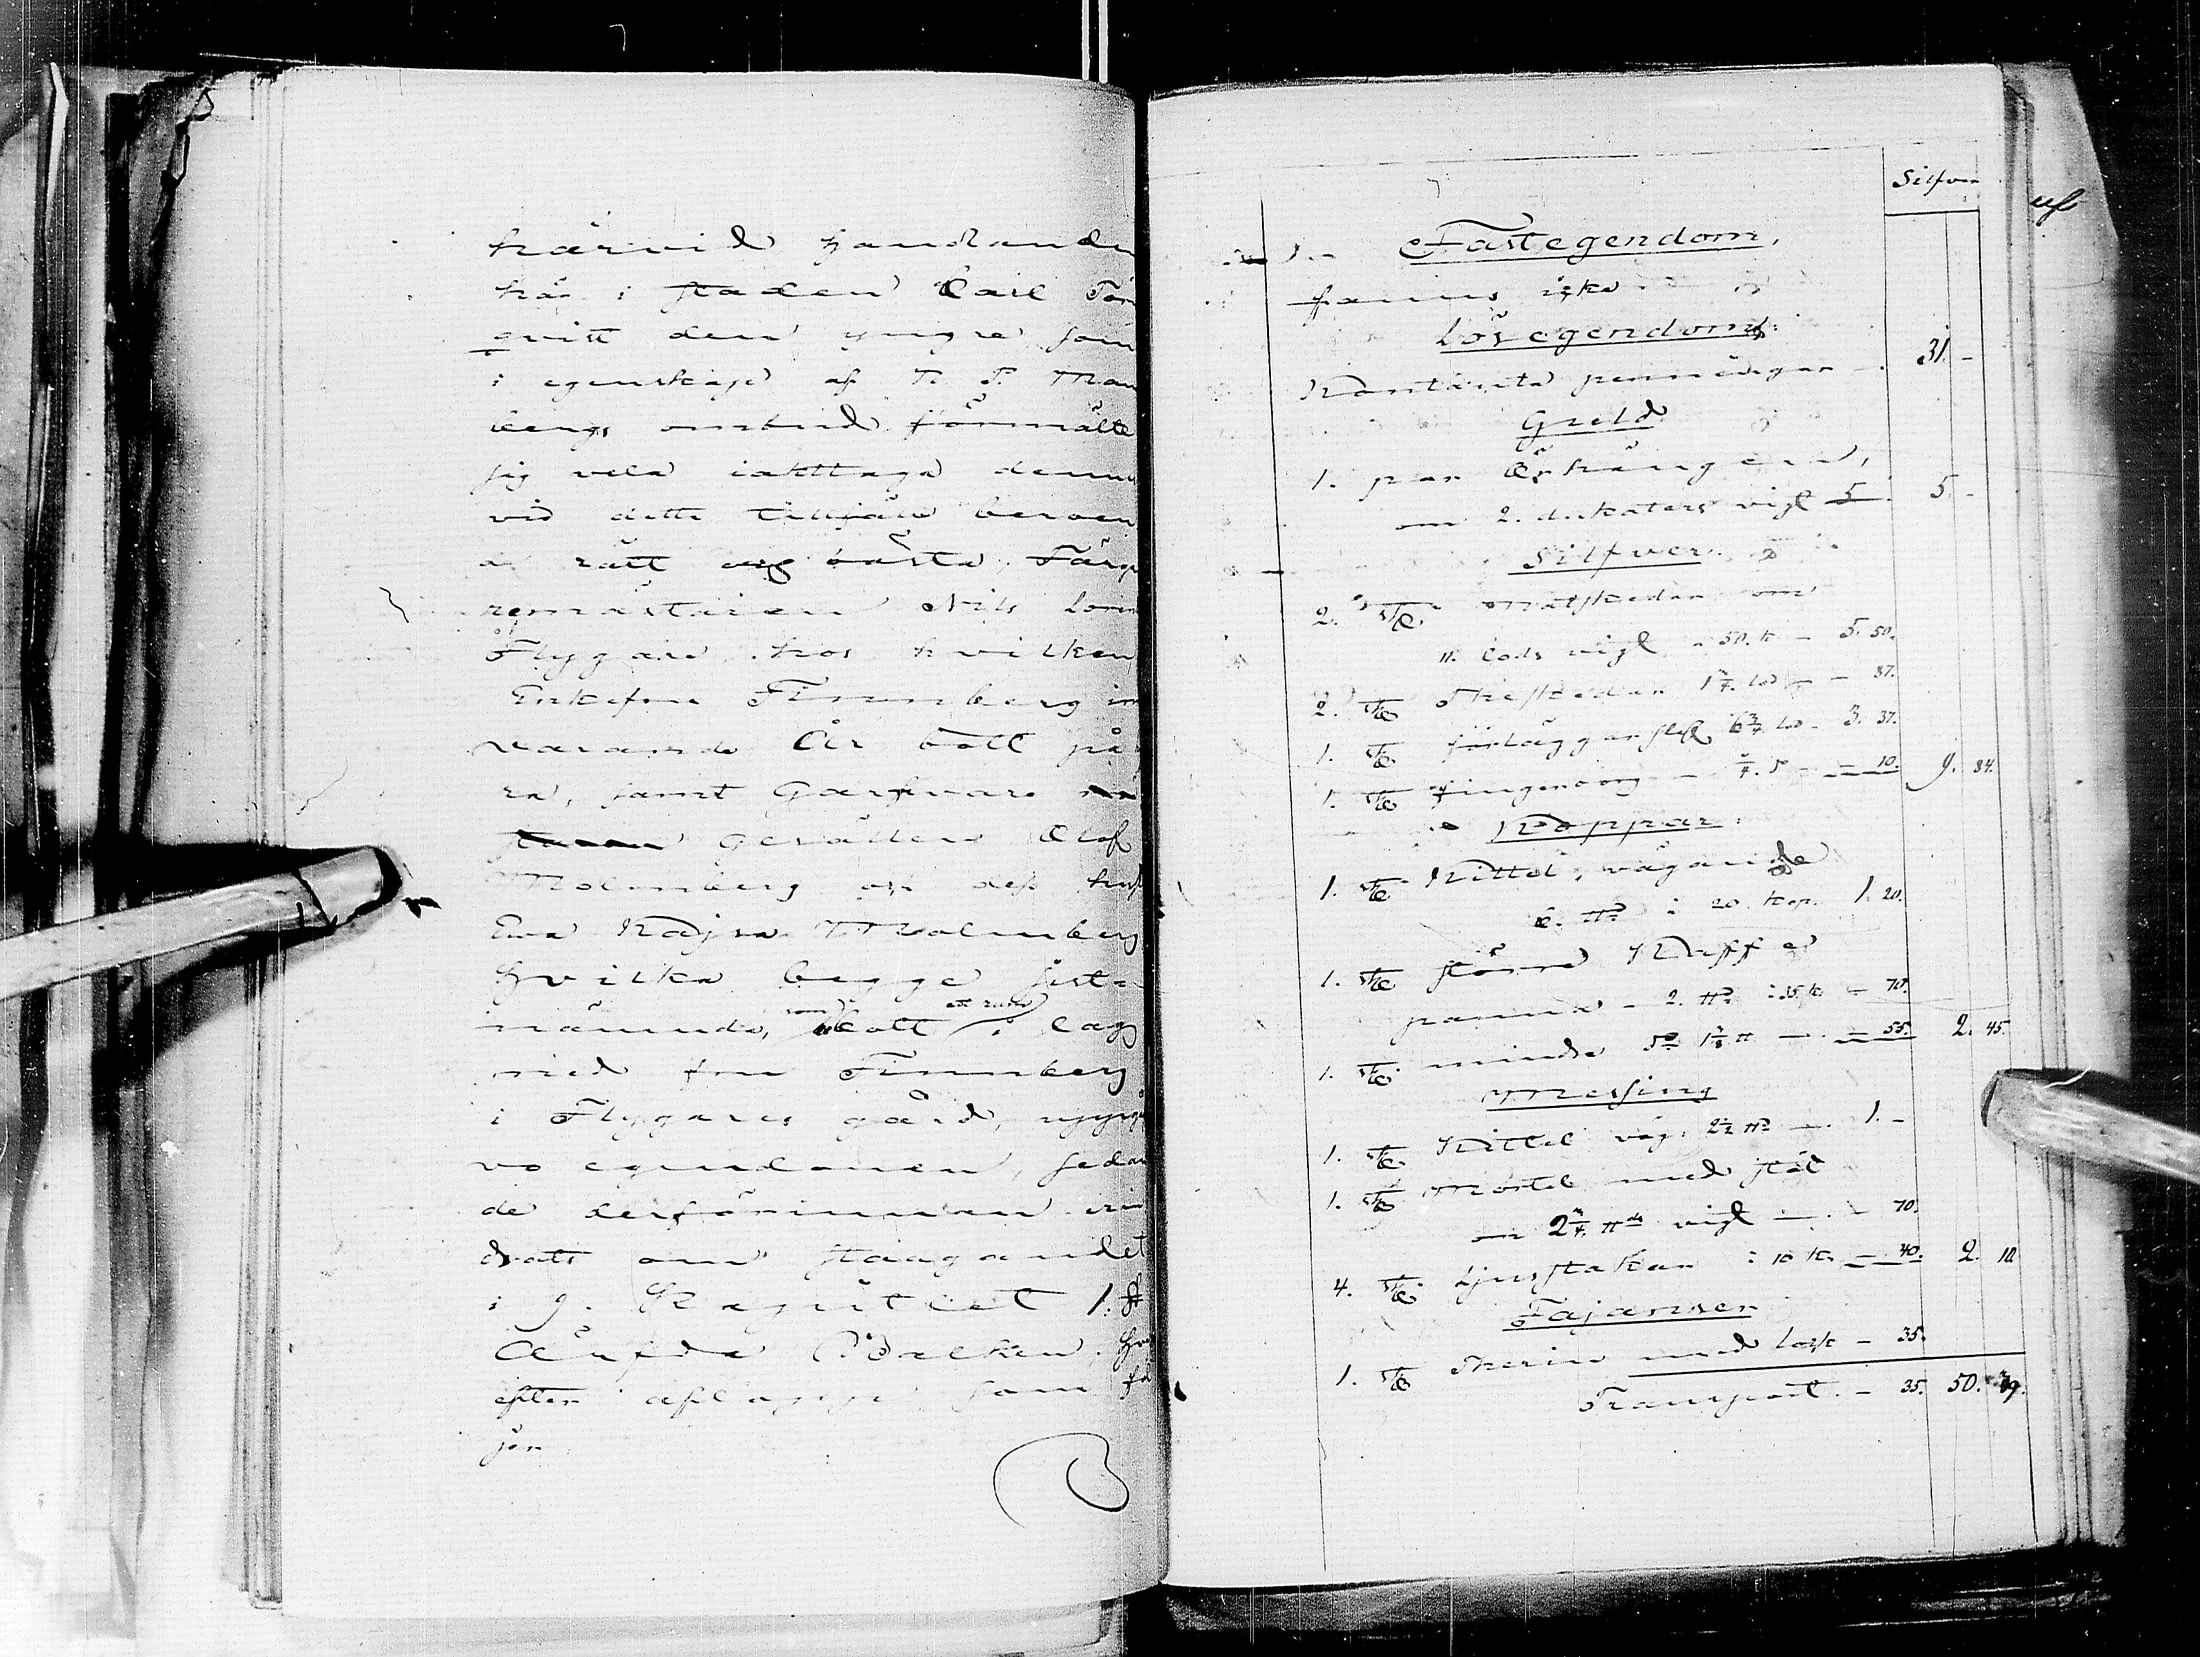 härvid handlanden
här i staden Carl Törn
qvist den yngre som
i egenskap af
bergs ombud förmälte
sig vela iakttaga dennes
vid detta tillfälle beroen
de rätt och bästa, Färga
remästaren Nils
Flygare hos hvilken
Enkefru Finnberg in
varande År bott på
ra, samt Garfvare
Gesällen Olof
Malmberg och dess hust
Eva Kajsa Malmberg
hvilka begge sist-
nämnde, som bott ett rum i lag
med fru Finnberg
i Flygares gård, uppgå
vo egendomen, sedan
de derförinnan erin
drats om stadgandet
i 9. Kapitlet 1. §
Ärfda Balken, hva
efter aflagge som fö
jer
Silfver
Fast egendom,
fanns icke
Lös egendom:
Kontanta penningar - 31. -
Guld
1. par Örhängen,
om 2. dukaters vigt 5. 5. -
Silfver.
2. st. Matskedar om
11. lods vigt - 50. k - 5. 50.
2. st. Theskedar 1 3/4 lod - - 87.
1. st. förläggarsked 6 3/4 lod - 3. 37.
1. st. fingerborg - 1/4. d° - - 10. 9. 84.
Koppar.
1. st. Kittel, vägande
6. ℔ à 20 kop. 1. 20.
1. st. större Kaffe
panna - 2. ℔ à 35. k. - 70.
1. st. mindre d° 1 5/8 ℔ - - 55. 2. 45.
Messing
1. st. Kittel väg. 2 1/2 ℔ - 1. -
1. st. Mortel med stöt
om 2 3/4 ℔ vigt - - 70.
4. st. Ljusstakar à 10 k. - 40. 2. 10.
Fajanser
1. st. Therin med lock - 35.
Transport. - 35. 50. 39.